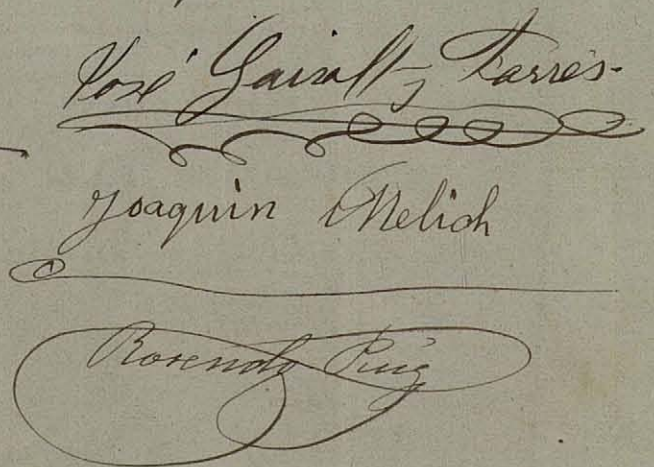 José Giralt y Farrés
Joaquin Melich
Rosendo Puig